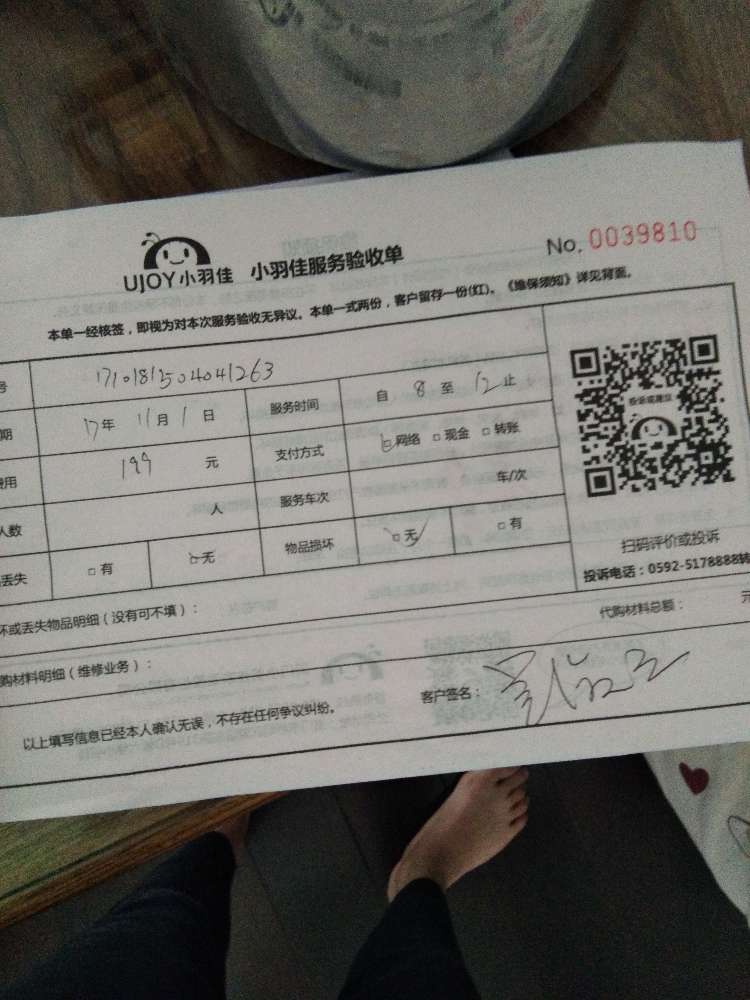 UJOY小羽佳 小羽佳服务验收单 No. 0039810
本单一经核签，即视为对本次服务验收无异议。本单一式两份，客户留存一份(红)。《维保须知》详见背面。
号 1710181504041263
期 17年 11月 1日 服务时间 自 8 至 12 止
费用 199 元 支付方式 □网络 □现金 □转账
人数 人 服务车次 车/次
丢失 □有 □无 物品损坏 □无 □有
投诉或建议
扫码评价或投诉
投诉电话：0592-5178888转
坏或丢失物品明细（没有可不填）：
购材料明细（维修业务）： 代购材料总额： 元
以上填写信息已经本人确认无误，不存在任何争议纠纷。 客户签名：